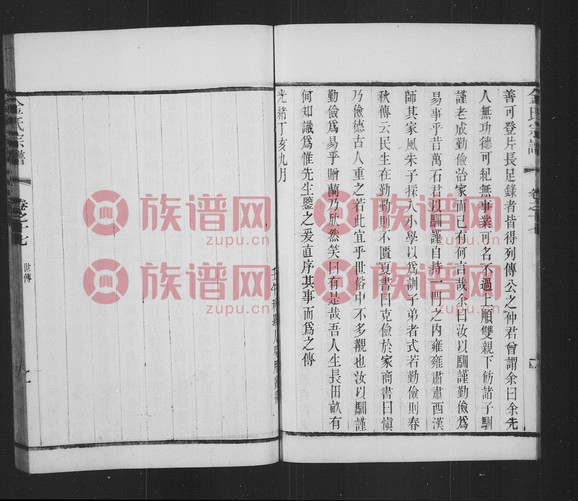 善可登片長足錄者皆得列傳公之仲君曾謂余曰余先
人無功德可紀無事業可名不過上順雙親下飭諸子馴
謹老成勤儉治家而已有何言哉余曰汝以馴謹勤儉為
易事乎昔萬石君以馴謹自持一門之內雍雍肅肅西漢
師其家風朱子採入小學以為訓子弟者式若勤儉則春
秋傳云民生在勤勤則不匱夏書曰克儉於家商書曰慎
乃儉德古人重之若此宜乎世俗中不多覯也汝以馴謹
勤儉為易乎贈蘭乃欣然笑曰有是哉吾人生長田畝有
何知識為惟先生鑒之爰直序其事而為之傳
光緒丁亥九月
金氏宗譜
卷之十七
世傳
族谱网
zupu.cn
族谱网
zupu.cn
族谱网
zupu.cn
族谱网
zupu.cn